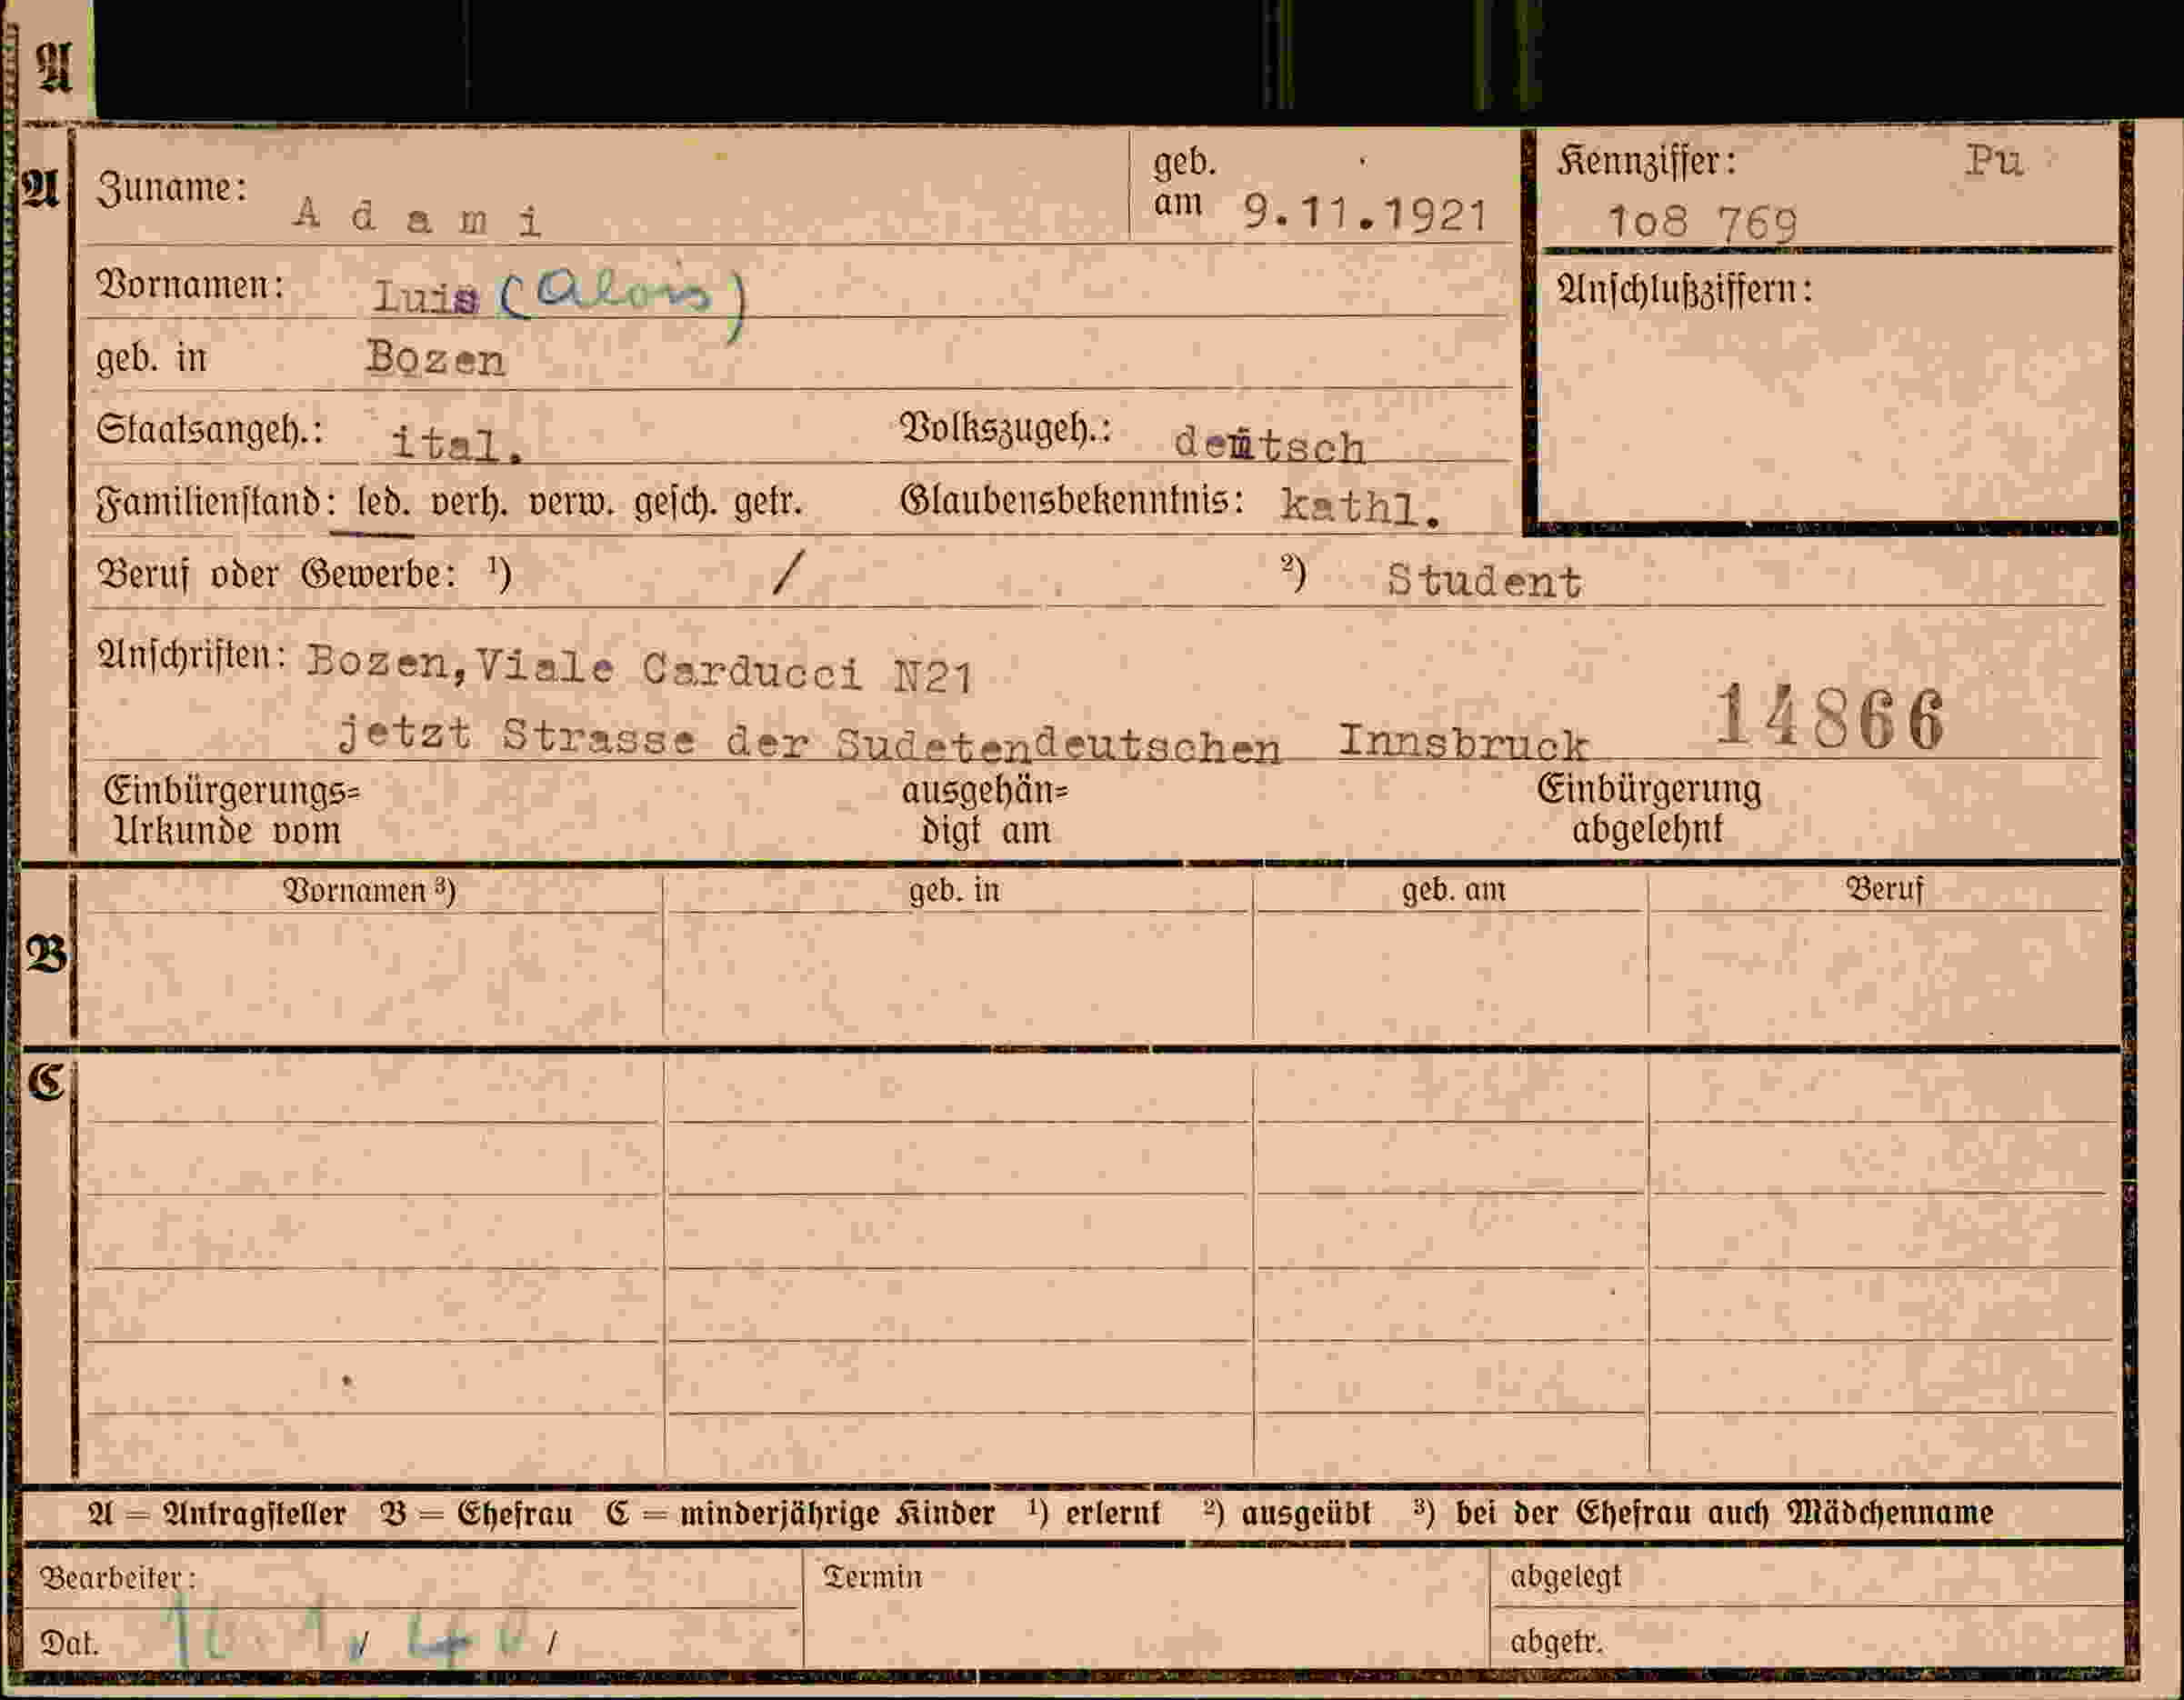 A
A
Zuname: Adami geb. am 9.11.1921
Kennziffer: Pu
1o8 769
Vornamen: Luis (Alois)
Anschlußziffern:
geb. in Bozen
Staatsangeh.: ital. Volkszugeh.: deutsch
Familienstand: led. verh. verw. gesch. getr. Glaubensbekenntnis: kathl.
Beruf oder Gewerbe: ¹) / ²) Student
Anschriften: Bozen, Viale Carducci N21
jetzt Strasse der Sudetendeutschen Innsbruck 14866
Einbürgerungs= Urkunde vom ausgehän= digt am Einbürgerung abgelehnt
Vornamen ³) geb. in geb. am Beruf
B
C
A = Antragsteller B = Ehefrau C = minderjährige Kinder ¹) erlernt ²) ausgeübt ³) bei der Ehefrau auch Mädchenname
Bearbeiter: Termin abgelegt
Dat. abgetr.